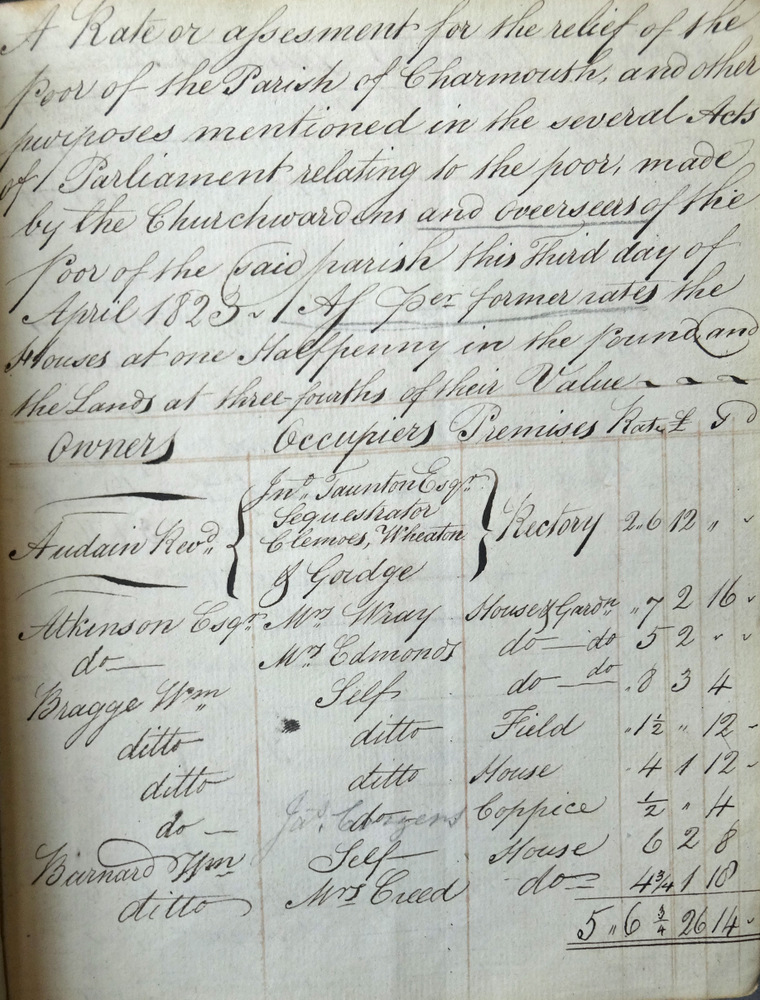 A Rate or assesment for the relief of the
Poor of the Parish of Charmouth, and other
purposes mentioned in the several Acts
of Parliament relating to the poor, made
by the Churchwardens and overseers of the
Poor of the said parish this Third day of
April 1823. As Per former rates the
Houses at one Halfpenny in the Pound and
the Lands at three-fourths of their Value
Owners Occupiers Premises Rate £ S D
Jno. Taunton Esqr.
Sequestrator
Audain Revd. Clemoes, Wheaton Rectory 2..6 12 " "
& Gordge
Atkinson Esqr. Mrs Wray House & Gardn " 7 2 16 "
do Mrs Edmonds do do 5 2 " "
Bragge Wm Self do do " 8 3 4
ditto ditto Field " 1½ " 12 "
ditto ditto House 4 1 12 "
do do Coppice ½ " 4
Barnard Wm Self House 6 2 8
ditto Mrs Creed do 4¾ 1 18
5 " 6 ¾ 26 14 "